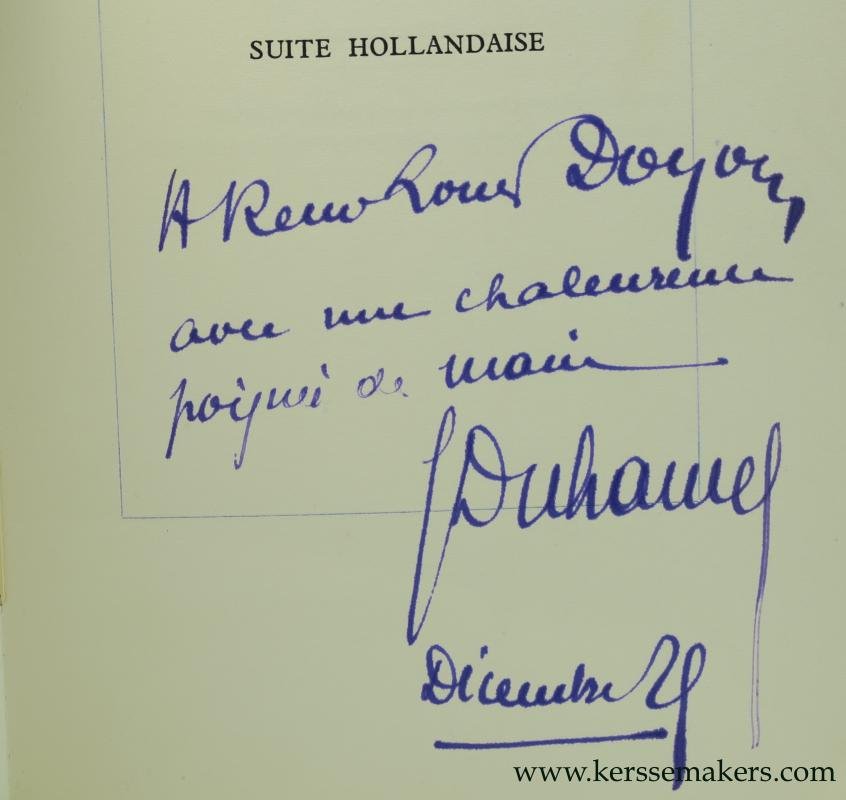 SUITE HOLLANDAISE
A René Louis Doyon,
avec une chaleureuse
poignée de main
GDuhamel
Décembre 25
www.kerssemakers.com